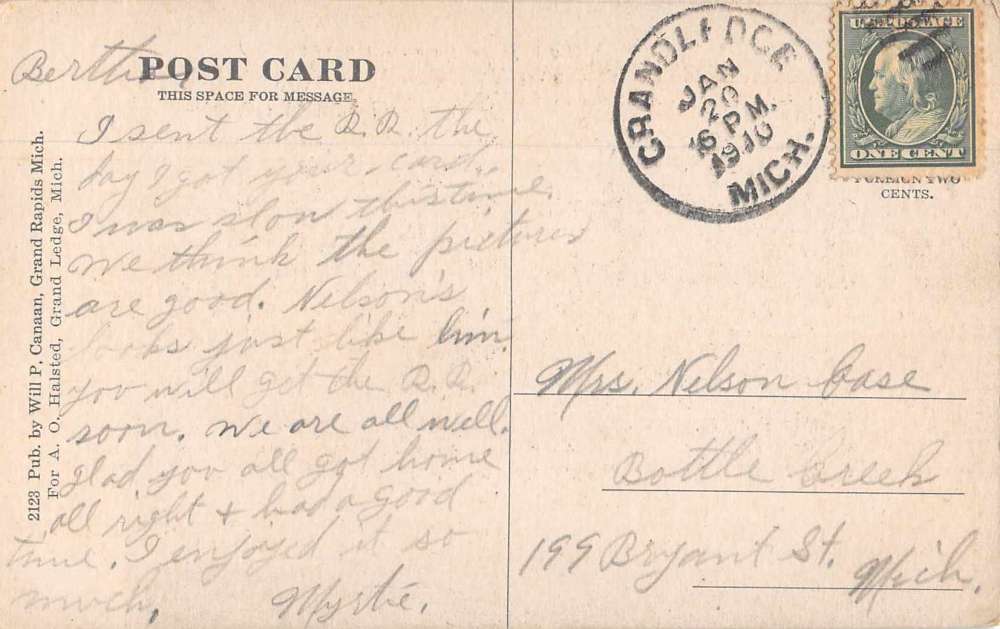 Bertha
POST CARD
THIS SPACE FOR MESSAGE.
I sent the R.R. the
day I got your card.
I was slow this time.
We think the pictures
are good. Nelson's
looks just like him.
you will get the R.R.
soon. We are all well.
glad you all got home
all right + had a good
time. I enjoyed it so
much. Myrtie.
2123 Pub. by Will P. Canaan, Grand Rapids Mich.
For A. O. Halsted, Grand Ledge, Mich.
GRAND LEDGE
JAN
20
6 PM.
1910
MICH.
U.S. POSTAGE
ONE CENT
FOREIGN TWO
CENTS.
Mrs. Nelson Case
Battle Creek
199 Bryant St. Mich.